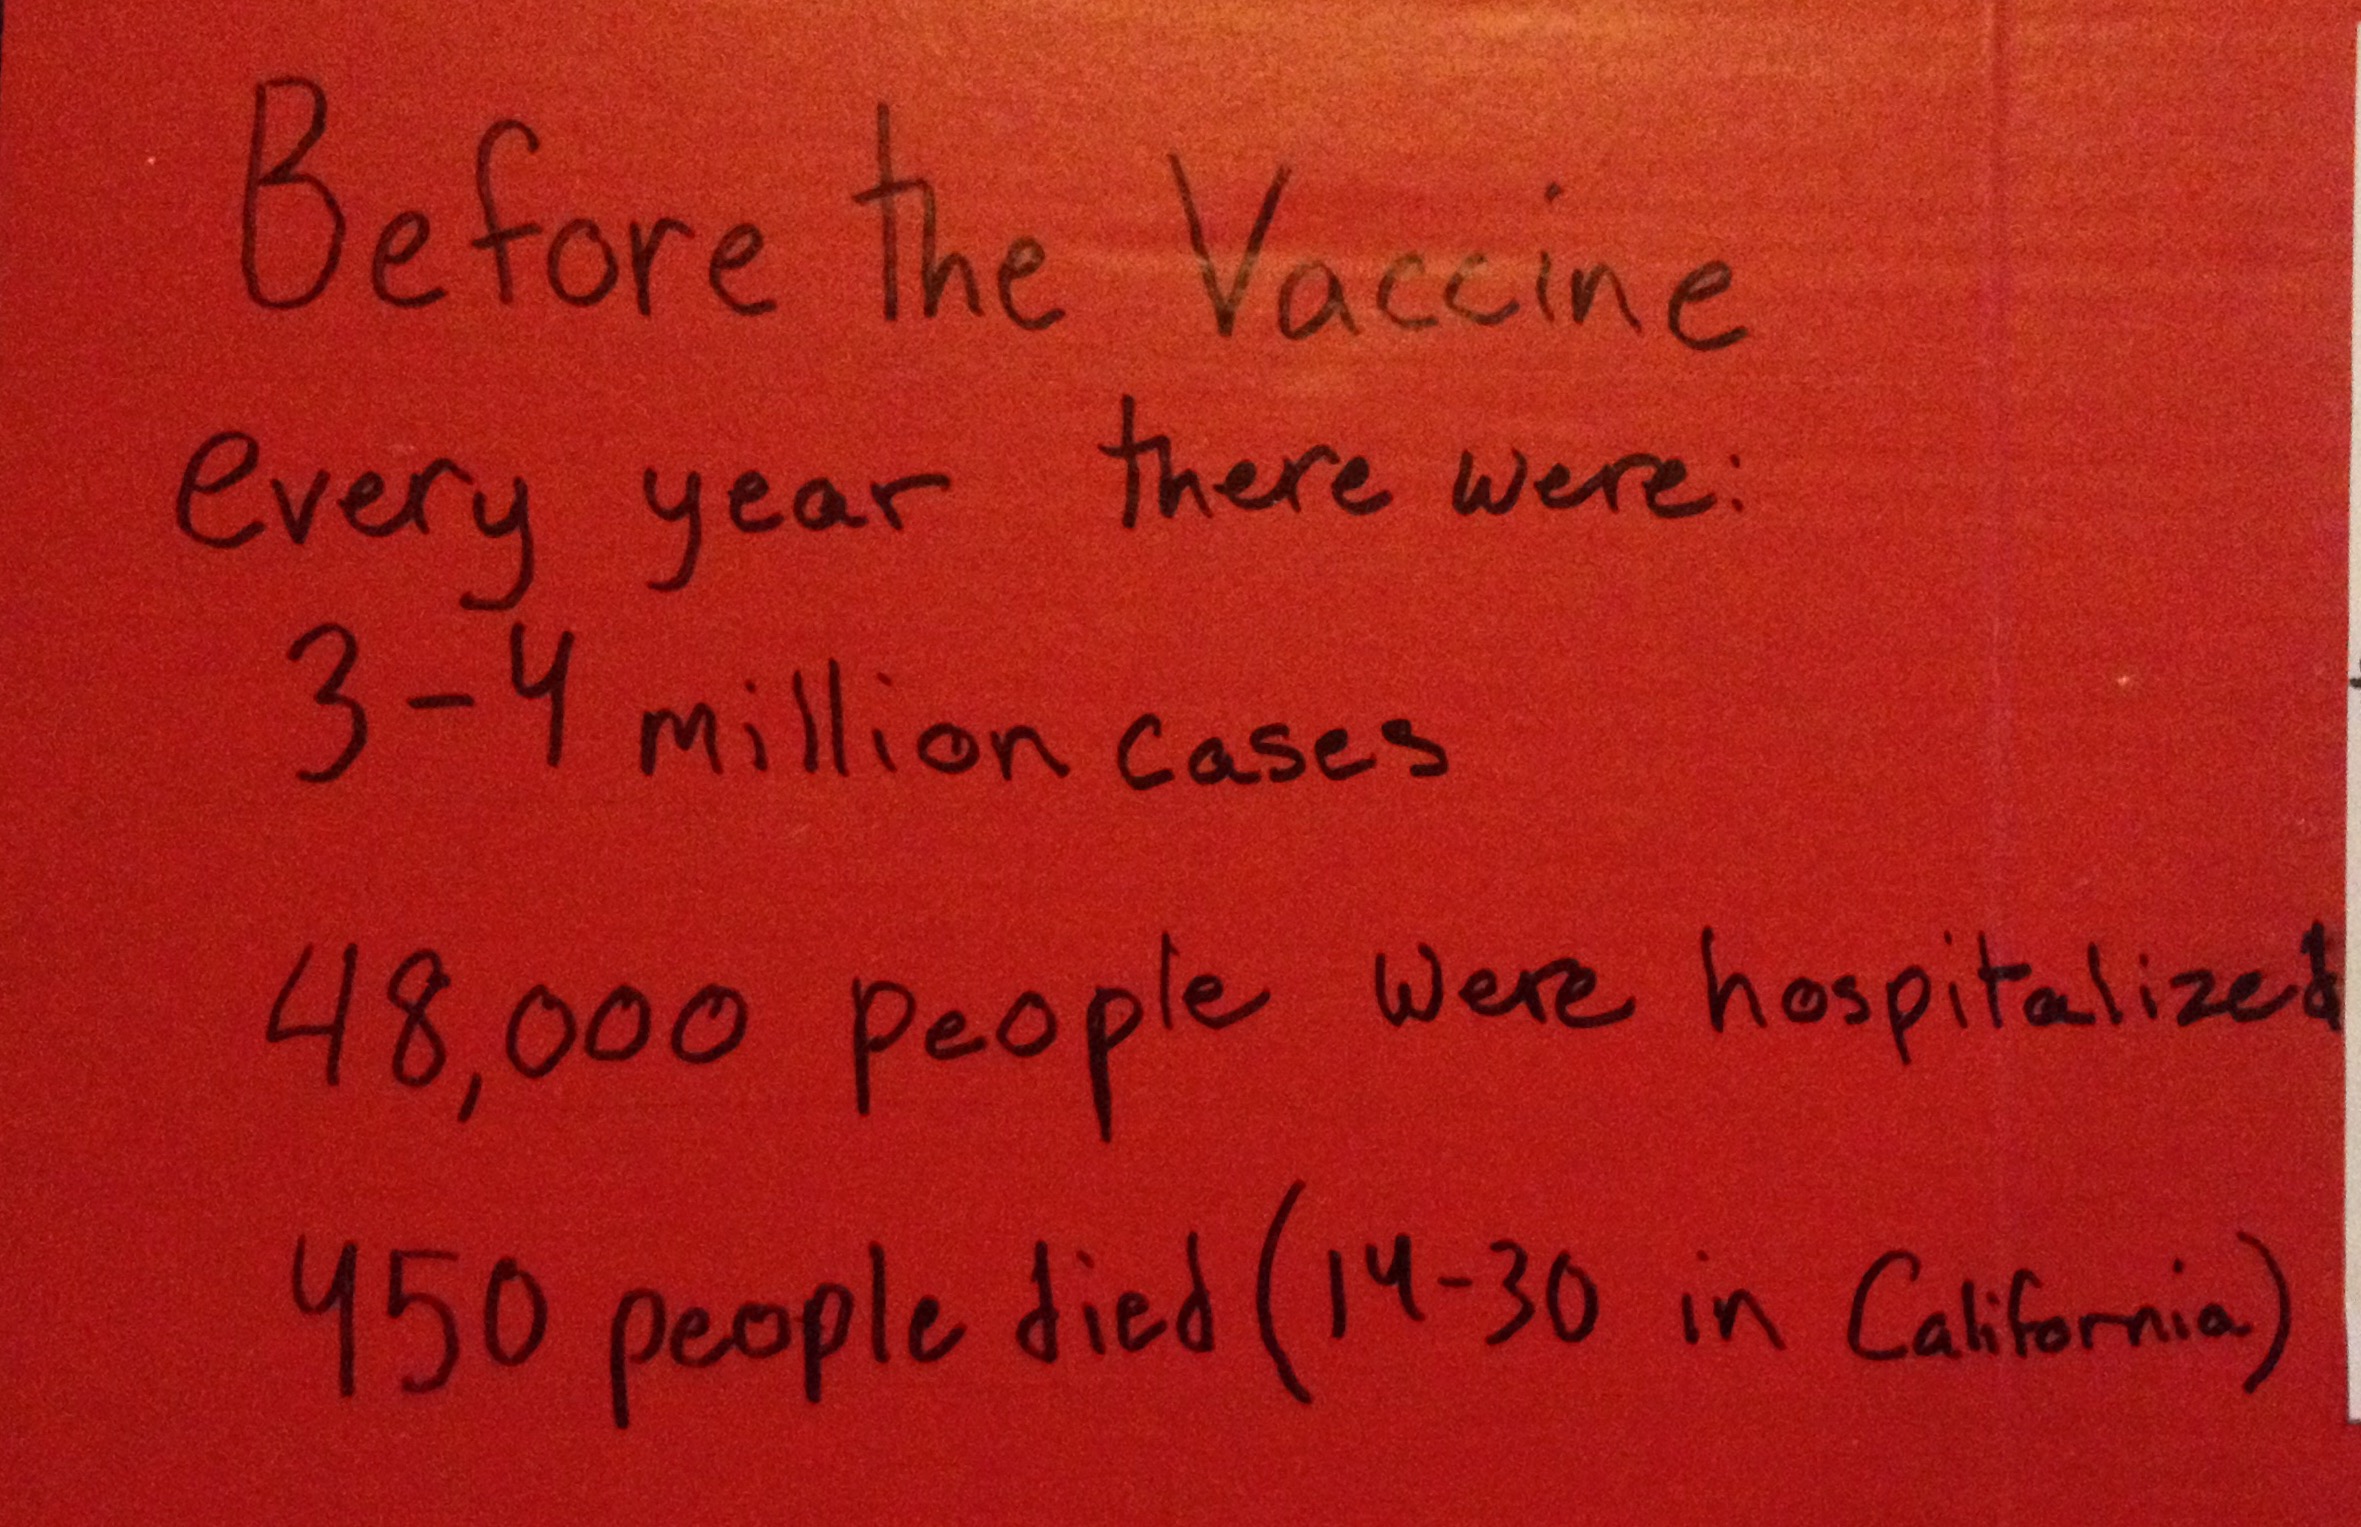 Before the Vaccine
every year there were:
3-4 million cases
48,000 people were hospitalized
450 people died (14-30 in California)